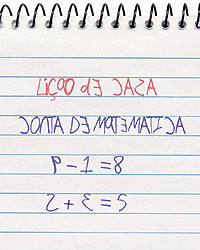 LIÇÃO dE CASA
CONTA DE MATEMATICA
9 - 1 = 8
2 + 3 = 5